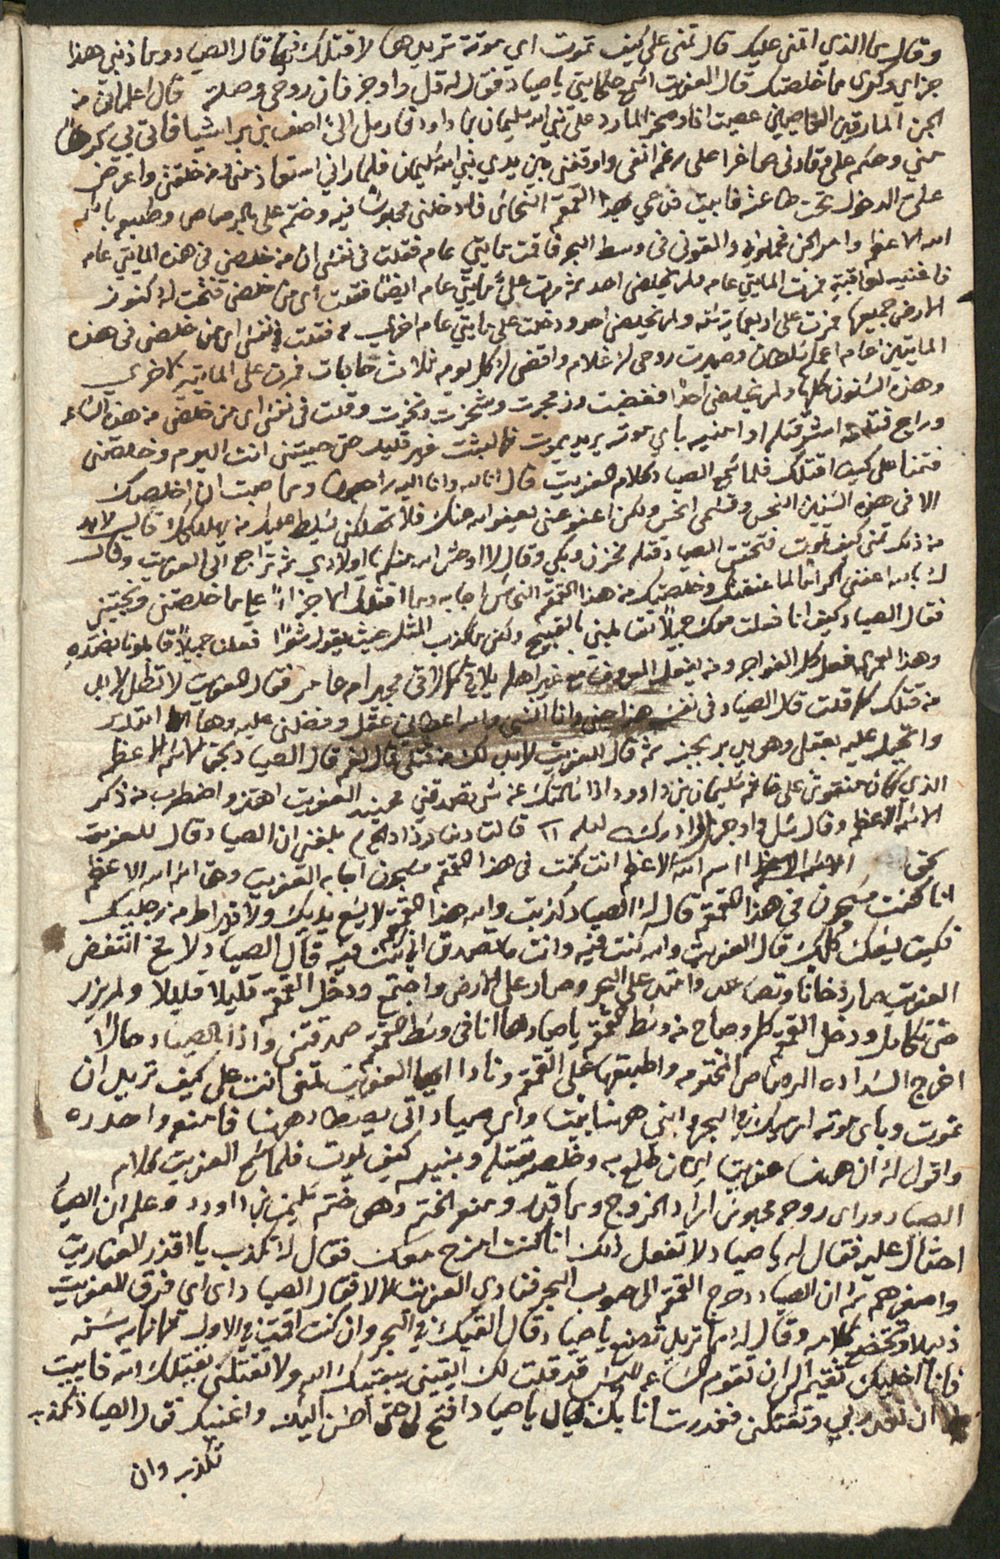 وقال ما الذي اتمنى عليك قال تمنى علي كيف تموت اي موتة تريدها لاقتلك بها قال الصياد وما ذنبي هذا
جزاي وكوني ما خلصتك قال العفريت اسمع حكايتي يا صياد فقال له قل واوجز فان روحي وصلة قال اعلم اني من
الجن المارقين العاصين عصيت انا وصخر المارد على نبي الله سليمان بن داود فارسل الي اصف بن برخيا فاتى بي كرها
عني وحكم علي وقادني صاغرا على رغم انفي واوقفني بين يدي نبي الله سليمان فلما راني استعاذ مني ومن خلقتي واعرض
علي الدخول تحت طاعته فابيت فدعى بهذا القمقم النحاس فادخلني محبوسا فيه وختم علي بالرصاص وطبعه باسم
الله الاعظم وامر الجن فحملوني والقوني في وسط البحر فاقمت مايتي عام فقلت في نفسي ان من خلصني في هذه المايتي عام
فاغنيه لعاقبته فمرت المايتي عام ولم يخلصني احد ثم مرت علي مايتي عام ايضا فقلت اي من خلصني فتحت له كنوز
الارض جميعها فمرت على اربعماية سنه ولم يخلصني احد ودخلت علي مايتي عام اخرى فقلت في نفسي اي من خلصني في هذه
المايتين عام اعمله سلطان وصيرت روحي له غلام واقضي له كل يوم ثلاث حاجات فمرت علي المايتين الاخرى
وهذه السنون كلها ولم يخلصني أحدا فغضبت وزمجرت وشخرت ونخرت وقلت في نفسي اي من خلصني من هذه الساعه
ورايح قتلته اشر قتله او امنيه بأي موته يريد يموت فما لبثت غير قليل حتى جيتني انت اليوم وخلصتني
فتمنا علي كيف اقتلك فلما سمع الصياد كلام العفريت قال انا لله وانا اليه راجعون وما صبت ان اخلصك
الا في هذه السنين النحس وقسمي انحس ولكن اعفو عني يعفو الله عنك فلا تهلكني يسلط عليك من يهلكك قال لابد
من ذلك تمنى كيف تموت فتحقق الصياد قتله فحزن وبكي وقال لا اوحش الله منكم يا اولادي ثم تراجع الى العفريت وقال
له بالله اعتقني اكراما لما عتقتك وخلصتك من هذا القمقم النحاس اجابه وما اقتلك الا جزاءً علي ما خلصتني ونجيتني
فقال الصياد كيف انا فعلت معك جميلاً تقابلني بالقبيح ولكن ما كذب المثل حيث يقول شعرًا فعلنا جميلاً قابلونا بضده
وهذا لعمري فعل كل الفواجر ومن يفعل المعروف مع غير اهله يلاقي كما لاقى مجير ام عامر فقال العفريت لا تطل لابد
من قتلك كما قلت قال الصياد في نفسه هذا جني وانا انسي والله اعطاني عقل وفضلني عليه وها انا اتدبر
واتحيل عليه بعقلي وهو يدبر بجنه ثم قال للعفريت لابد لك من قتلي قال نعم قال الصياد بحق الاسم الاعظم
الذي كان منقوش على خاتم سليمان بن داوود اذا سالتك عن شي تصدقني فعند العفريت اهتز واضطرب من ذكر
الاسم الاعظم وقال سل واوجز ادرك ليله ١١ قالت دينارزاد بلغني ان الصياد قال للعفريت
بحق الاسم الاعظم اسم الله الاعظم انت كنت في هذا القمقم مسجون اجابه العفريت وحق اسم الله الاعظم
انا كنت مسجون في هذا القمقم قال له الصياد كذبت والله هذا القمقم لا يسع يديك ولا قيراط من رجليك
فكيف يسعك كلك قال العفريت والله كنت فيه وانت ما تصدق اني كنت فيه قال الصياد لا نعم انتفض
العفريت صار دخانا وتصاعد وامتد على البحر وصار على الارض واجتمع ودخل القمقم قليلا قليلا ولم يزل
حتى تكامل ودخل القمقم كله وصاح من وسط القمقم يا صياد ها انا في وسط القمقم صدقتني واذا بالصياد حالا
اخرج السداده الرصاص المختومه واطبقها على القمقم ونادا ايها العفريت تمنى انت علي كيف تريد ان
تموت وباي موته ارميك في البحر وابني ههنا بيت واي صياد اتى يصطاد هنا فامنعه واحدره
واقول له ان هنا عفريت اي من طلع به وخلصه يقتله ويمنيه كيف يموت فلما سمع العفريت كلام
الصياد وراى روحه محبوس اراد الخروج وما قدر ومنعه الختم وهو ختم سليمان بن داوود وعلم ان الصياد
احتال عليه فقال له يا صياد لا تفعل ذلك انا كنت امزح معك فقال له تكذب يا اقذر العفاريت
واصغرهم ثم ان الصياد دحرج القمقم الى صوب البحر فنادى العفريت لا لا فقال الصياد اي اي فرق العفريت
ذليلا وتخضع بكلامه وقال له ما تريد تصنع يا صياد قال القيك في البحر وان كنت اقمت في الاول ثمانمايه سنه
فانا اخليك تقيم الى ان تقوم الساعه اليس قد قلت لك ابقيني يبقيك الله ولا تقتلني يقتلك الله فابيت
الا تغدر بي وتقتلني فغدرت انا بك قال يا صياد افتح لي حتى احسن اليك واغنيك قال الصياد تكذب
تكذب وان